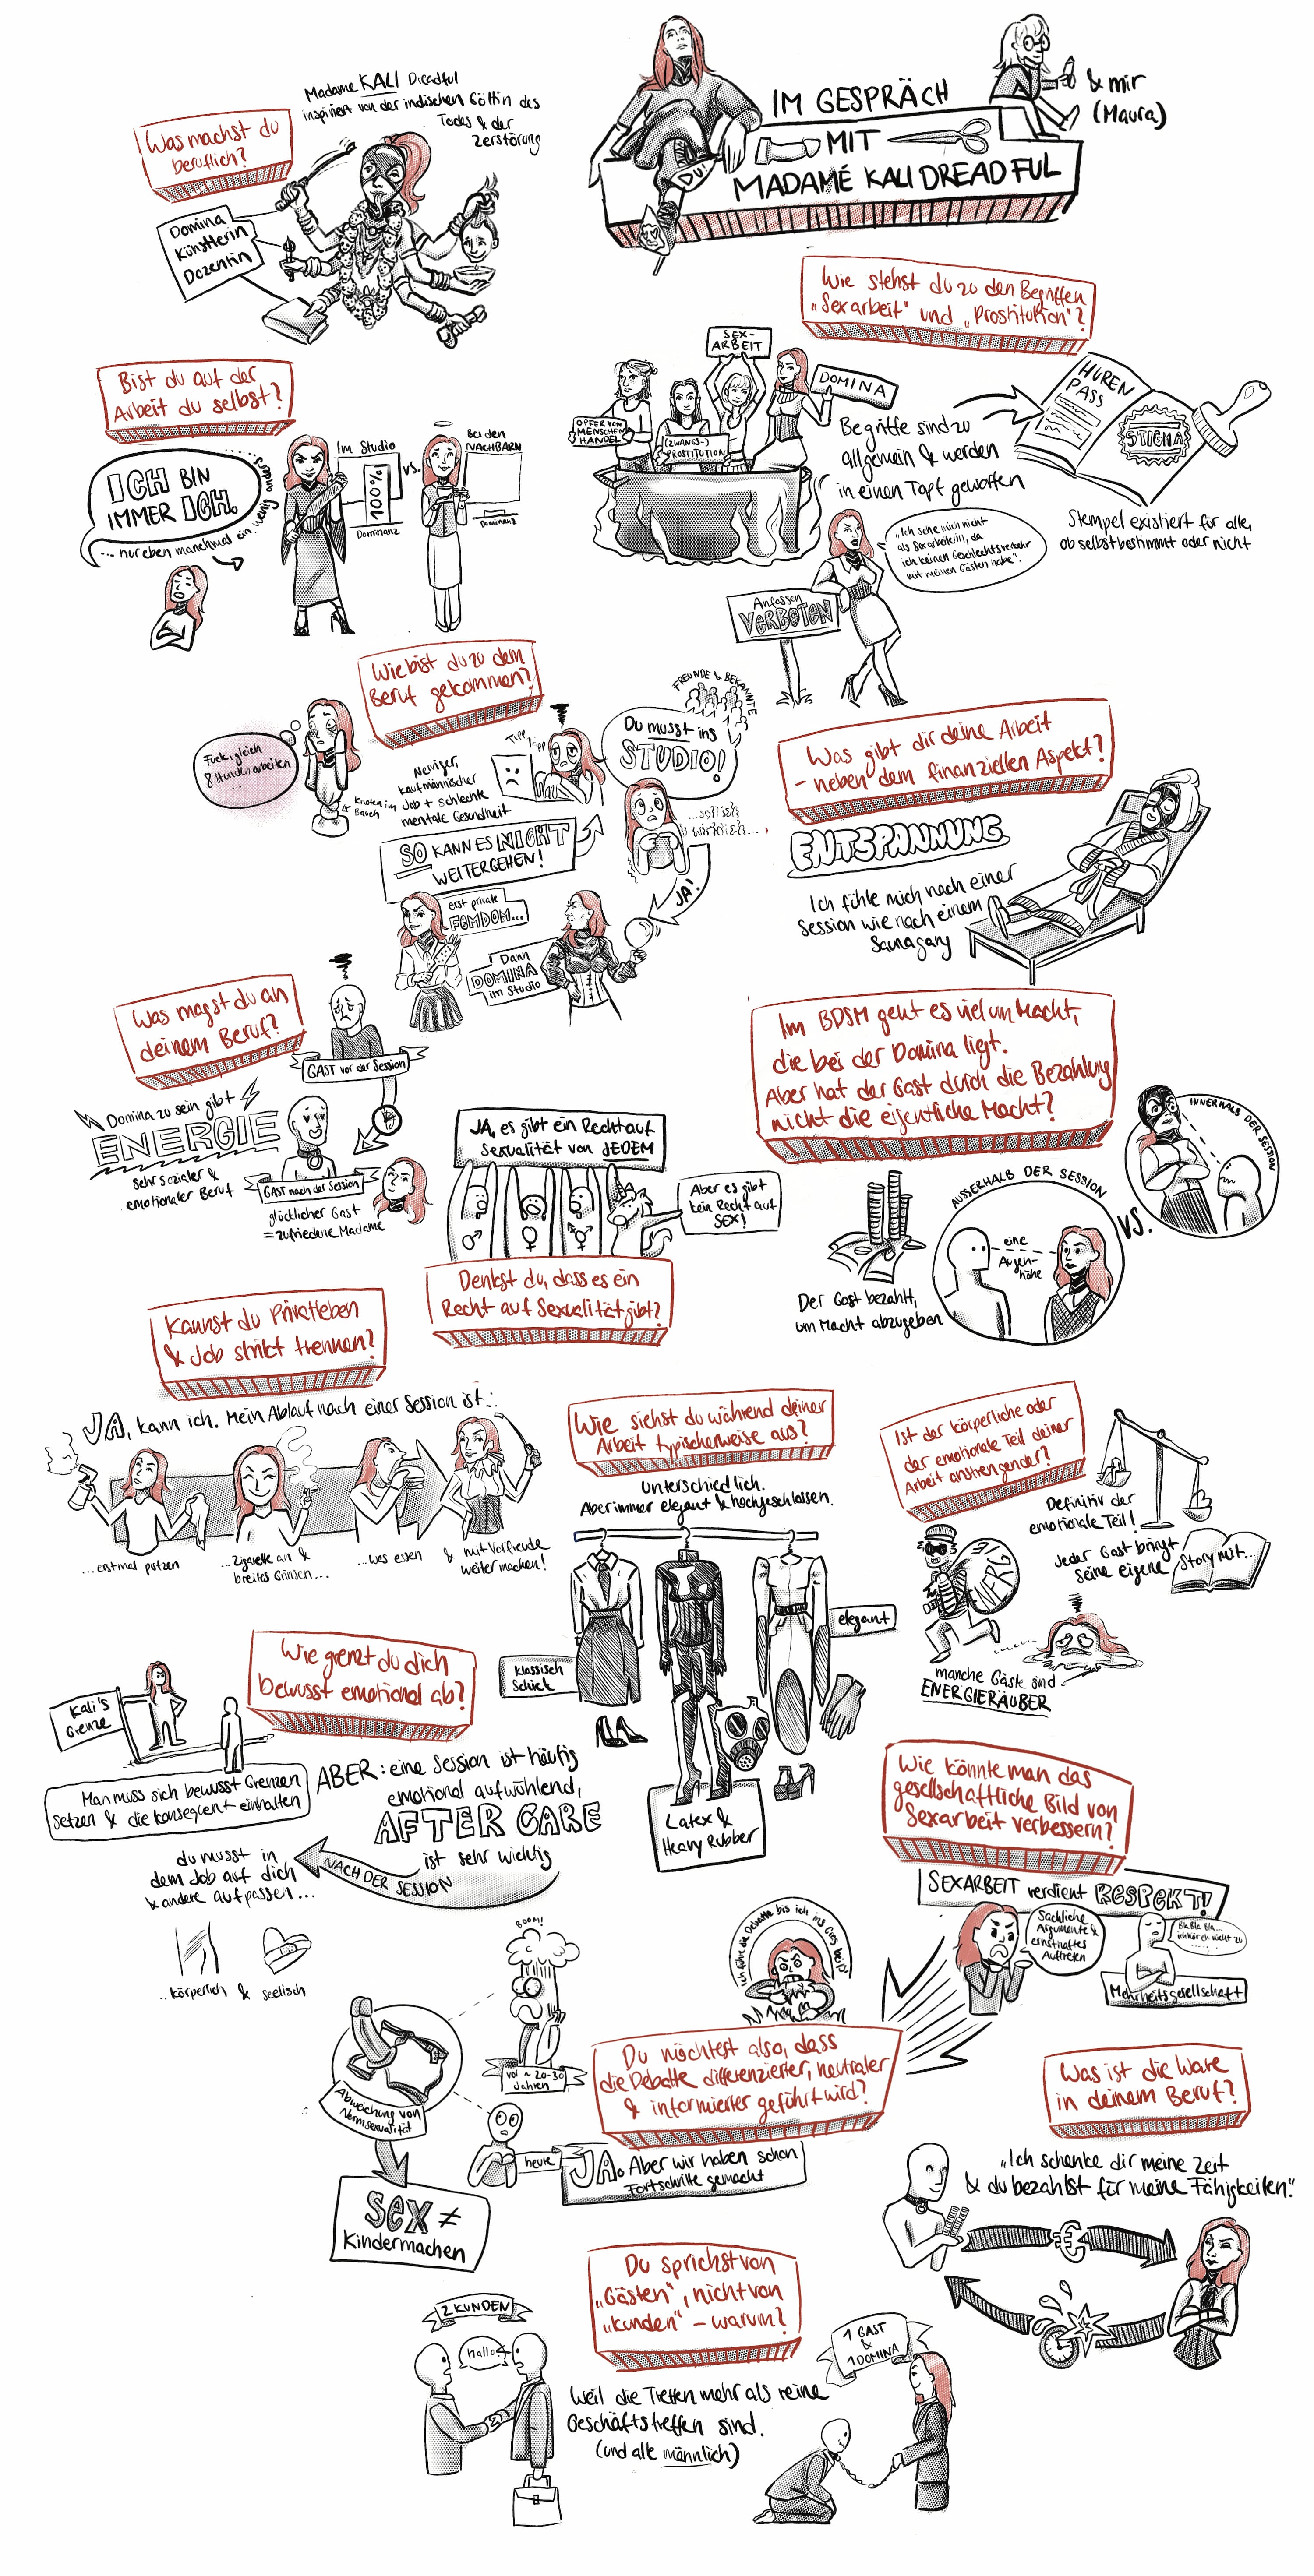 IM GESPRÄCH
MIT
MADAMÉ KALI DREADFUL
DU!
& mir
(Maura)
Madame KALI Dreadful
inspiriert von der indischen Göttin des
Todes & der
Zerstörung
Was machst du
beruflich?
Domina
Künstlerin
Dozentin
Wie stehst du zu den Begriffen
„Sexarbeit" und „Prostitution"?
SEX-
ARBEIT
DOMINA
OPFER VON
MENSCHEN
HANDEL
(ZWANGS-)
PROSTITUTION
Begriffe sind zu
allgemein & werden
in einen Topf geworfen
HUREN
PASS
STIGMA
Stempel existiert für alle,
ob selbstbestimmt oder nicht
„Ich sehe mich nicht
als Sexarbeiterin, da
ich keinen Geschlechtsverkehr
mit meinen Gästen habe".
Anfassen
VERBOTEN
Bist du auf der
Arbeit du selbst?
ICH BIN
IMMER ICH.
... nur eben manchmal ein wenig anders
Im Studio
100%
Dominanz
vs.
Bei den
NACHBARN
Dominanz
Wie bist du zu dem
Beruf gekommen?
Fuck, gleich
8 Stunden arbeiten
...
Knoten im
Bauch
Nerviger,
kaufmännischer
Job + schlechte
mentale Gesundheit
Tipp
Tipp
SO KANN ES NICHT
WEITERGEHEN!
FREUNDE & BEKANNTE
Du musst ins
STUDIO!
...soll ich
wirklich...
JA!
erst private
FEMDOM...
Dann
DOMINA
im Studio
Was gibt dir deine Arbeit
- neben dem finanziellen Aspekt?
ENTSPANNUNG
Ich fühle mich nach einer
Session wie nach einem
Saunagang
Was magst du an
deinem Beruf?
GAST vor der Session
Domina zu sein gibt
ENERGIE
sehr sozialer &
emotionaler Beruf
GAST nach der Session
glücklicher Gast
= zufriedene Madame
JA, es gibt ein Recht auf
Sexualität von JEDEM
Aber es gibt
kein Recht auf
SEX!
Denkst du, dass es ein
Recht auf Sexualität gibt?
Im BDSM geht es viel um Macht,
die bei der Domina liegt.
Aber hat der Gast durch die Bezahlung
nicht die eigentliche Macht?
INNERHALB DER SESSION
VS.
AUSSERHALB DER SESSION
eine
Augen-
höhe
Der Gast bezahlt,
um Macht abzugeben
Kannst du Privatleben
& Job strikt trennen?
JA, kann ich. Mein Ablauf nach einer Session ist:
...erstmal putzen
...Zigarette an &
breites Grinsen...
...was essen
& mit Vorfreude
weitermachen!
Wie siehst du während deiner
Arbeit typischerweise aus?
Unterschiedlich.
Aber immer elegant & hochgeschlossen.
klassisch
Schick
elegant
Latex &
Heavy Rubber
Ist der körperliche oder
der emotionale Teil deiner
Arbeit anstrengender?
Definitiv der
emotionale Teil!
Jeder Gast bringt
seine eigene
Story mit..
ENERGIE
manche Gäste sind
ENERGIERÄUBER
Wie grenzt du dich
bewusst emotional ab?
Kali's
Grenze
Man muss sich bewusst Grenzen
setzen & die konsequent einhalten
ABER: eine Session ist häufig
emotional aufwühlend,
AFTER CARE
ist sehr wichtig
NACH DER SESSION
du musst in
dem Job auf dich
& andere aufpassen...
..körperlich & seelisch
Wie könnte man das
gesellschaftliche Bild von
Sexarbeit verbessern?
SEXARBEIT verdient RESPEKT!
Sachliche
Argumente &
ernsthaftes
Auftreten
Bla Bla Bla...
ich hör dir nicht zu
Mehrheitsgesellschaft
Ich führe die Debatte bis ich ins Gras beiß!
Du möchtest also, dass
die Debatte differenzierter, neutraler
& informierter geführt wird?
JA. Aber wir haben schon
Fortschritte gemacht
BOOM!
vor ~ 20-30
Jahren
heute
Abweichung von
Normsexualität
SEX ≠
Kindermachen
Was ist die Ware
in deinem Beruf?
„Ich schenke dir meine Zeit
& du bezahlst für meine Fähigkeiten."
€
Du sprichst von
„Gästen", nicht von
„Kunden" - warum?
2 KUNDEN
Hallo
Weil die Treffen mehr als reine
Geschäftstreffen sind.
(und alle männlich)
1 GAST
&
1 DOMINA